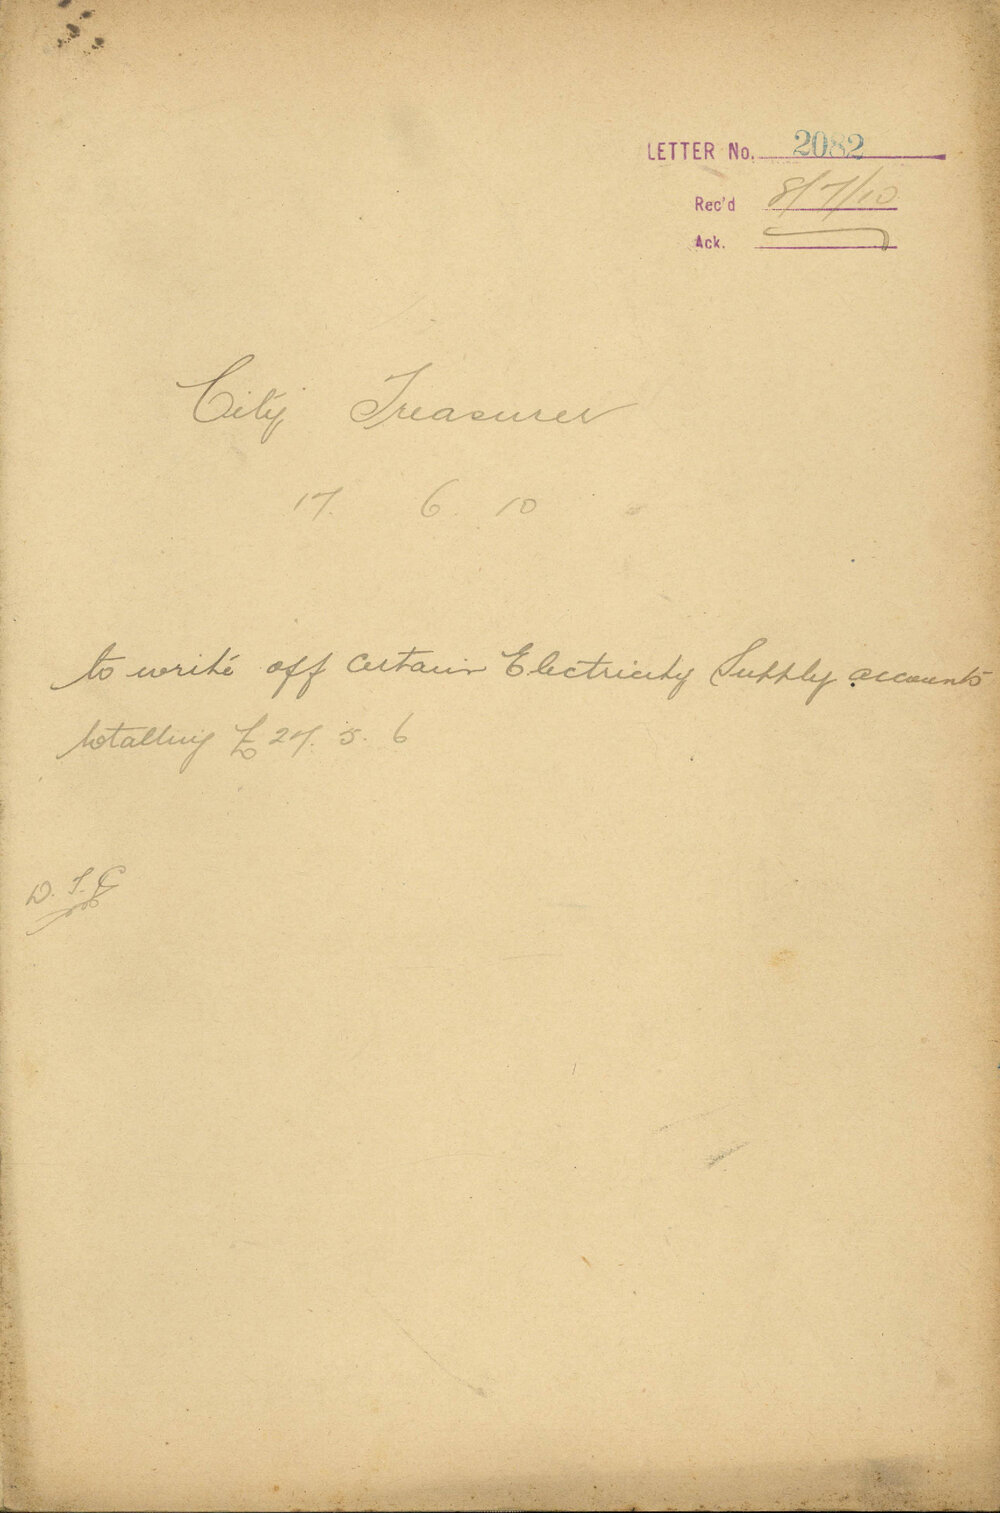 LETTER No. 2082
Rec'd 8/7/10
Ack.
City Treasurer
17. 6. 10
to write off certain Electricity Supply accounts
totalling £27. 5. 6